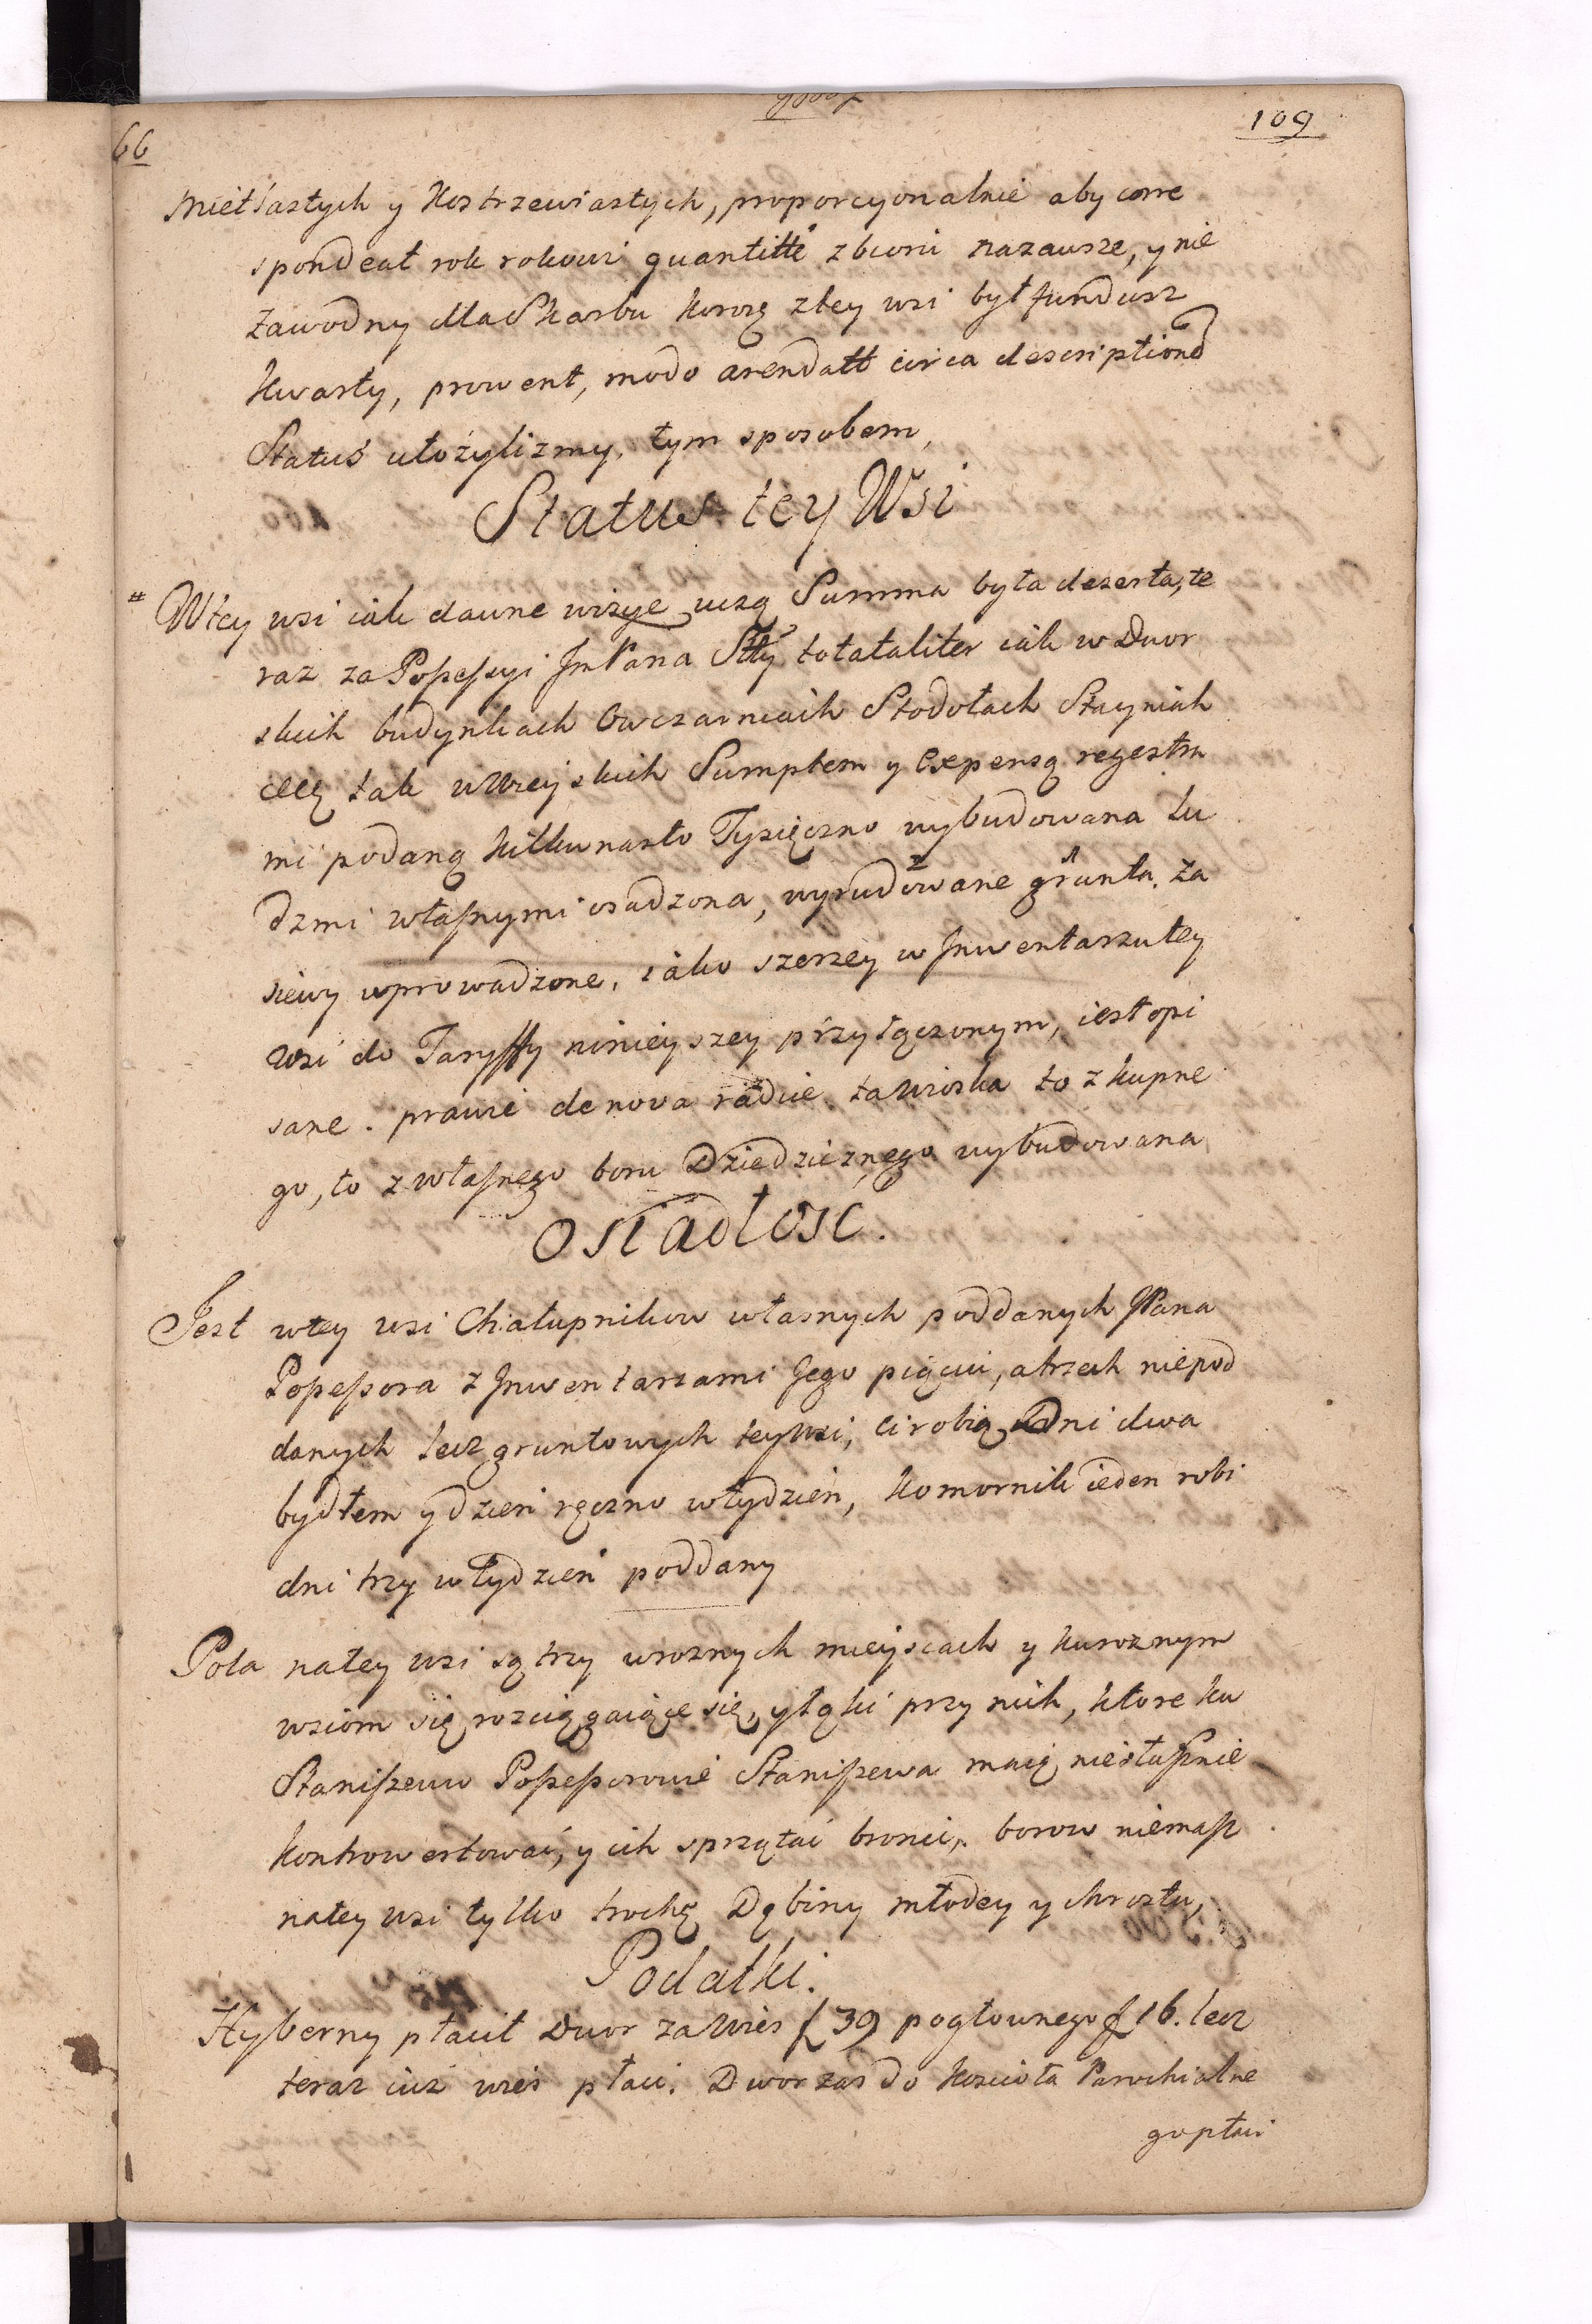 109
66
mietlastych y Kostrzewiastych, proporcyonalnie aby corre
spondeat rok rokowi quantitte zbiorii nazawsze, y nie
zawodny dla Skarbu Korzą ztey wsi był fundusz
Kwarty, prowent, modo arendatt circa description
Status ułożylizmy, tym sposobem,
Status tey Wsi
Wtey wsi iak dawne wizye uczą Summa była deserta, te
raz za Possessyi JmPana Stty totataliter iak w Dwor
skich budynkach Owczarniach Stodołach Stayniach
etc tak wWieyskich Sumptem y Expensą regestra
mi podaną kilkunasto Tysięczno wybudowana Lu
dzmi własnymi osadzona, wyrudowane grunta, Za
siewy wprowadzone, iako szerzey w Jnwentarzu tey
wsi do Taryffy ninieyszey przyłączonym, iest opi
sane. prawie denova radice ta Wioska to z kupne
go, to z własnego boru Dziedzicznego wybudowana
Osiadłosc.
Jest wtey wsi Chałupnikow własnych poddanych JPana
Possessora z Jnwentarzami Jego pięciu, a trzech niepod
danych lecz gruntowych tey wsi, ci robią Dni dwa
bydłem y dzien ręczno wtydzień, Komornik ieden robi
dni trzy wtydzień poddany
Pola natey wsi są trzy wroznych mieyscach y kuroznym
wsiom się rozciągaiące się, y łąki przy nich, ktore ku
Staniszewu Possessorowie Staniszewa maią niesłusznie
kontrowertować, y ich sprzątać bronić, borow niemasz
natey wsi tylko trochę Dębiny młodey y chrostu,
Podatki.
Hyberny płacił Dwor za Wies f 39 pogłownego f 16. lecz
teraz iuz wies płaci. Dwor zas do Koscioła Parochialne
go płaci